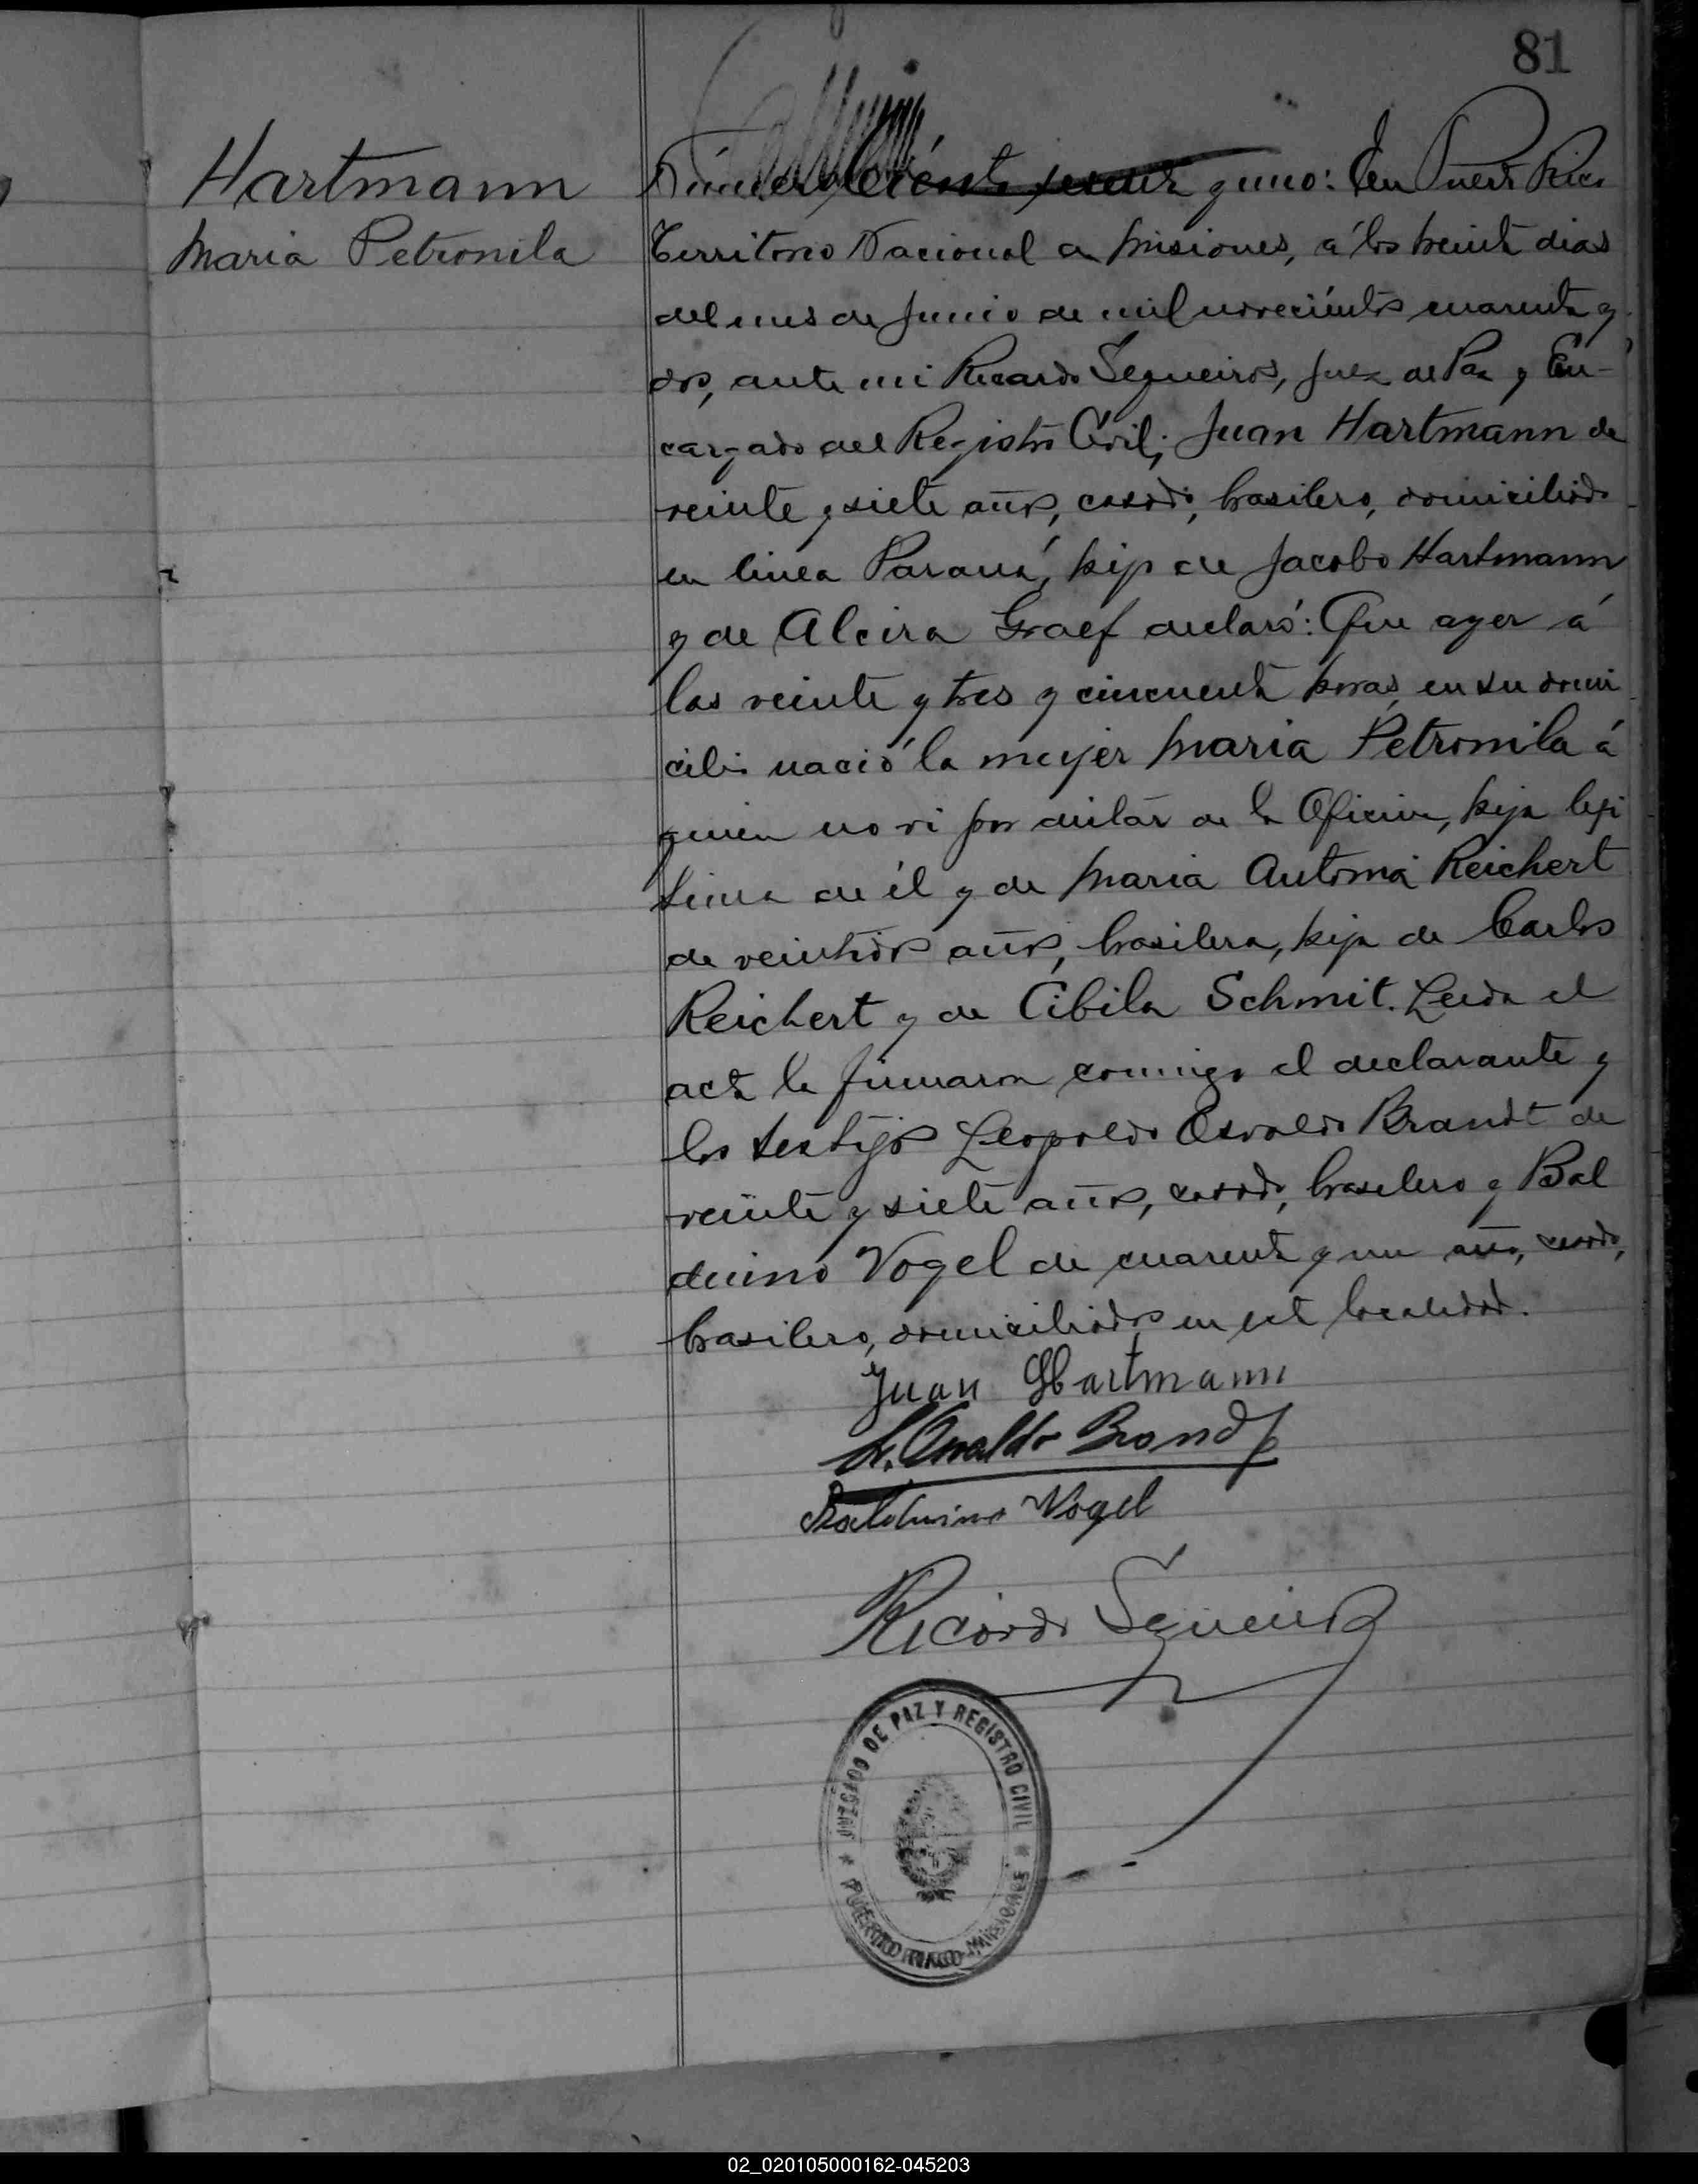 81
Hartmann
Maria Petronila
Número Ciento sesenta y uno: En Puerto Rico
Territorio Nacional de Misiones, á los treinta dias
del mes de Junio de mil novecientos cuarenta y
dos, ante mi Ricardo Sequeiros, Juez de Paz y En-
cargado del Registro Civil; Juan Hartmann de
veinte y siete años, casado, brasilero, domiciliado
en linea Paraná, hijo de Jacobo Hartmann
y de Alcira Graef declaró: Que ayer á
las veinte y tres y cincuenta horas, en su domi
cilio nació la mujer Maria Petronila á
quien no vi por distar de la Oficina, hija legi
tima de él y de Maria Antonia Reichert
de veintidos años, brasilera, hija de Carlos
Reichert y de Cibila Schmit. Leida el
acta la firmaron conmigo el declarante y
los testigos Leopoldo Osvaldo Brandt de
veinte y siete años, casado, brasilero y Bal
duino Vogel de cuarenta y un año, casado,
brasilero, domiciliados en esta localidad.
Juan Hartmann
L. Osvaldo Brandt
Balduino Vogel
Ricardo Sequeiros
JUZGADO DE PAZ Y REGISTRO CIVIL
* PUERTO RICO - MISIONES *
02_020105000162-045203